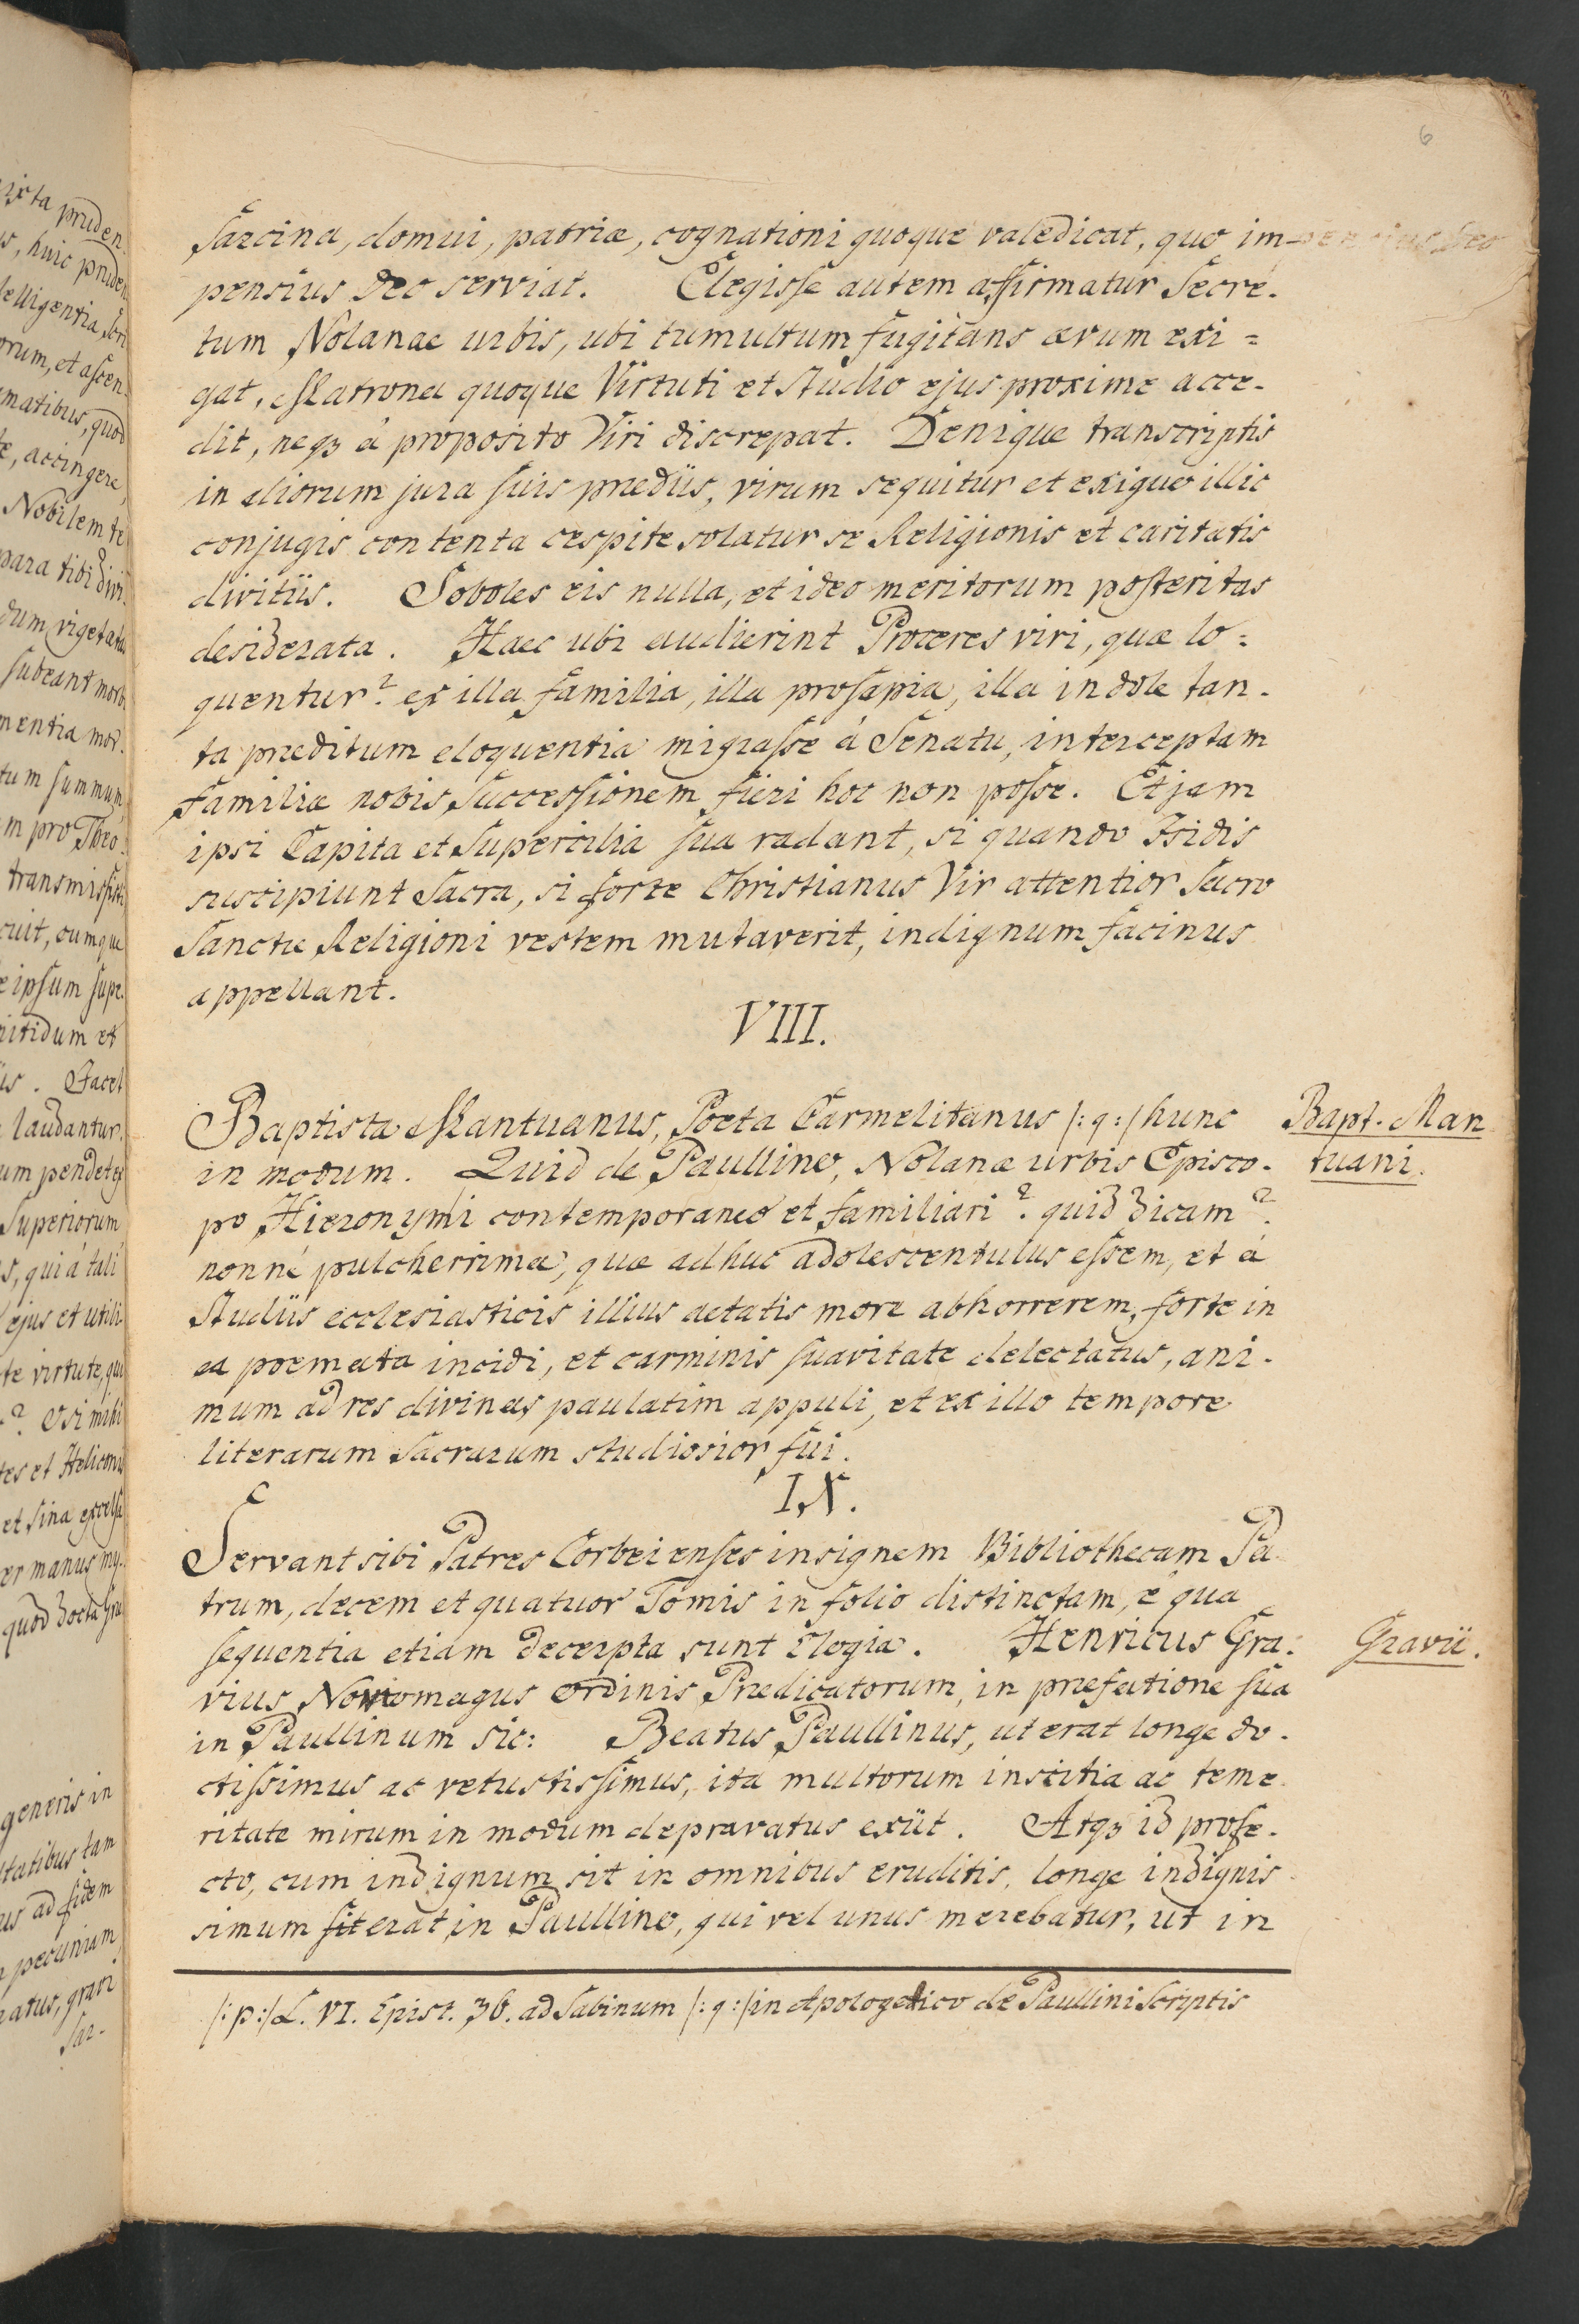 6
sarcina, domui, patriæ, cognationi quoque valedicat, quo im-
pensius Deo serviat. Elegisse autem affirmatur Secre-
tum Nolanae urbis, ubi tumultum fugitans ævum exi=
gat, Matrona quoque Virtuti et Studio ejus proxime acce-
dit, neqꝫ á proposito Viri discrepat. Denique transcriptis
in aliorum jura suis prædiis, virum sequitur et exiguo illic
conjugis contenta cespite solatur se Religionis et caritatis
divitiis. Soboles eis nulla, et ideo meritorum posteritas
desiderata. Haec ubi audierint Proceres viri, quæ lo=
quentur? ex illa familia, illa prosapia, illa indole tan-
ta præditum eloquentia migrasse á Senatu, interceptam
familiæ nobis Successionem fieri hoc non posse. Etjam
ipsi Capita et Supercilia sua radant, si quando Isidis
suscipiunt Sacra, si forte Christianus Vir attentior Sacro
Sanctæ Religioni vestem mutaverit, indignum facinus
appellant.
VIII.
Baptista Mantuanus, Poeta Carmelitanus /:q:/ hunc
Bapt. Man
in modum. Quid de Paullino, Nolanæ urbis Episco-
tuani.
po Hieronymi contemporaneo et familiari? quid dicam?
nonné pulcherrima, quæ adhuc adolescentulus essem, et á
Studiis ecclesiasticis illius aetatis more abhorrerem, forte in
ea poemata incidi, et carminis suavitate delectatus, ani-
mum ad res divinas paulatim appuli, et ex illo tempore
literarum Sacrarum studiosior fui.
IX.
Servant sibi Patres Corbeienses insignem Bibliothecam Pa-
trum, decem et quatuor Tomis in folio distinctam, e qua
sequentia etiam decerpta sunt Elogia. Henricus Gra:
Gravii.
vius Noviomagus Ordinis Prædicatorum, in præfatione sua
in Paullinum sic: Beatus Paullinus, ut erat longe do-
ctissimus ac vetustissimus, ita multorum inscitia ac teme-
ritate mirum in modum depravatus exiit. Atqꝫ id profe-
cto, cum indignum sit in omnibus eruditis, longe indignis-
simum sit erat, in Paullino, qui vel unus merebatur, ut in
/:p:/ L. VI. Epist. 36. ad Sabinum /:q:/ in Apologetico de Paullini Scriptis